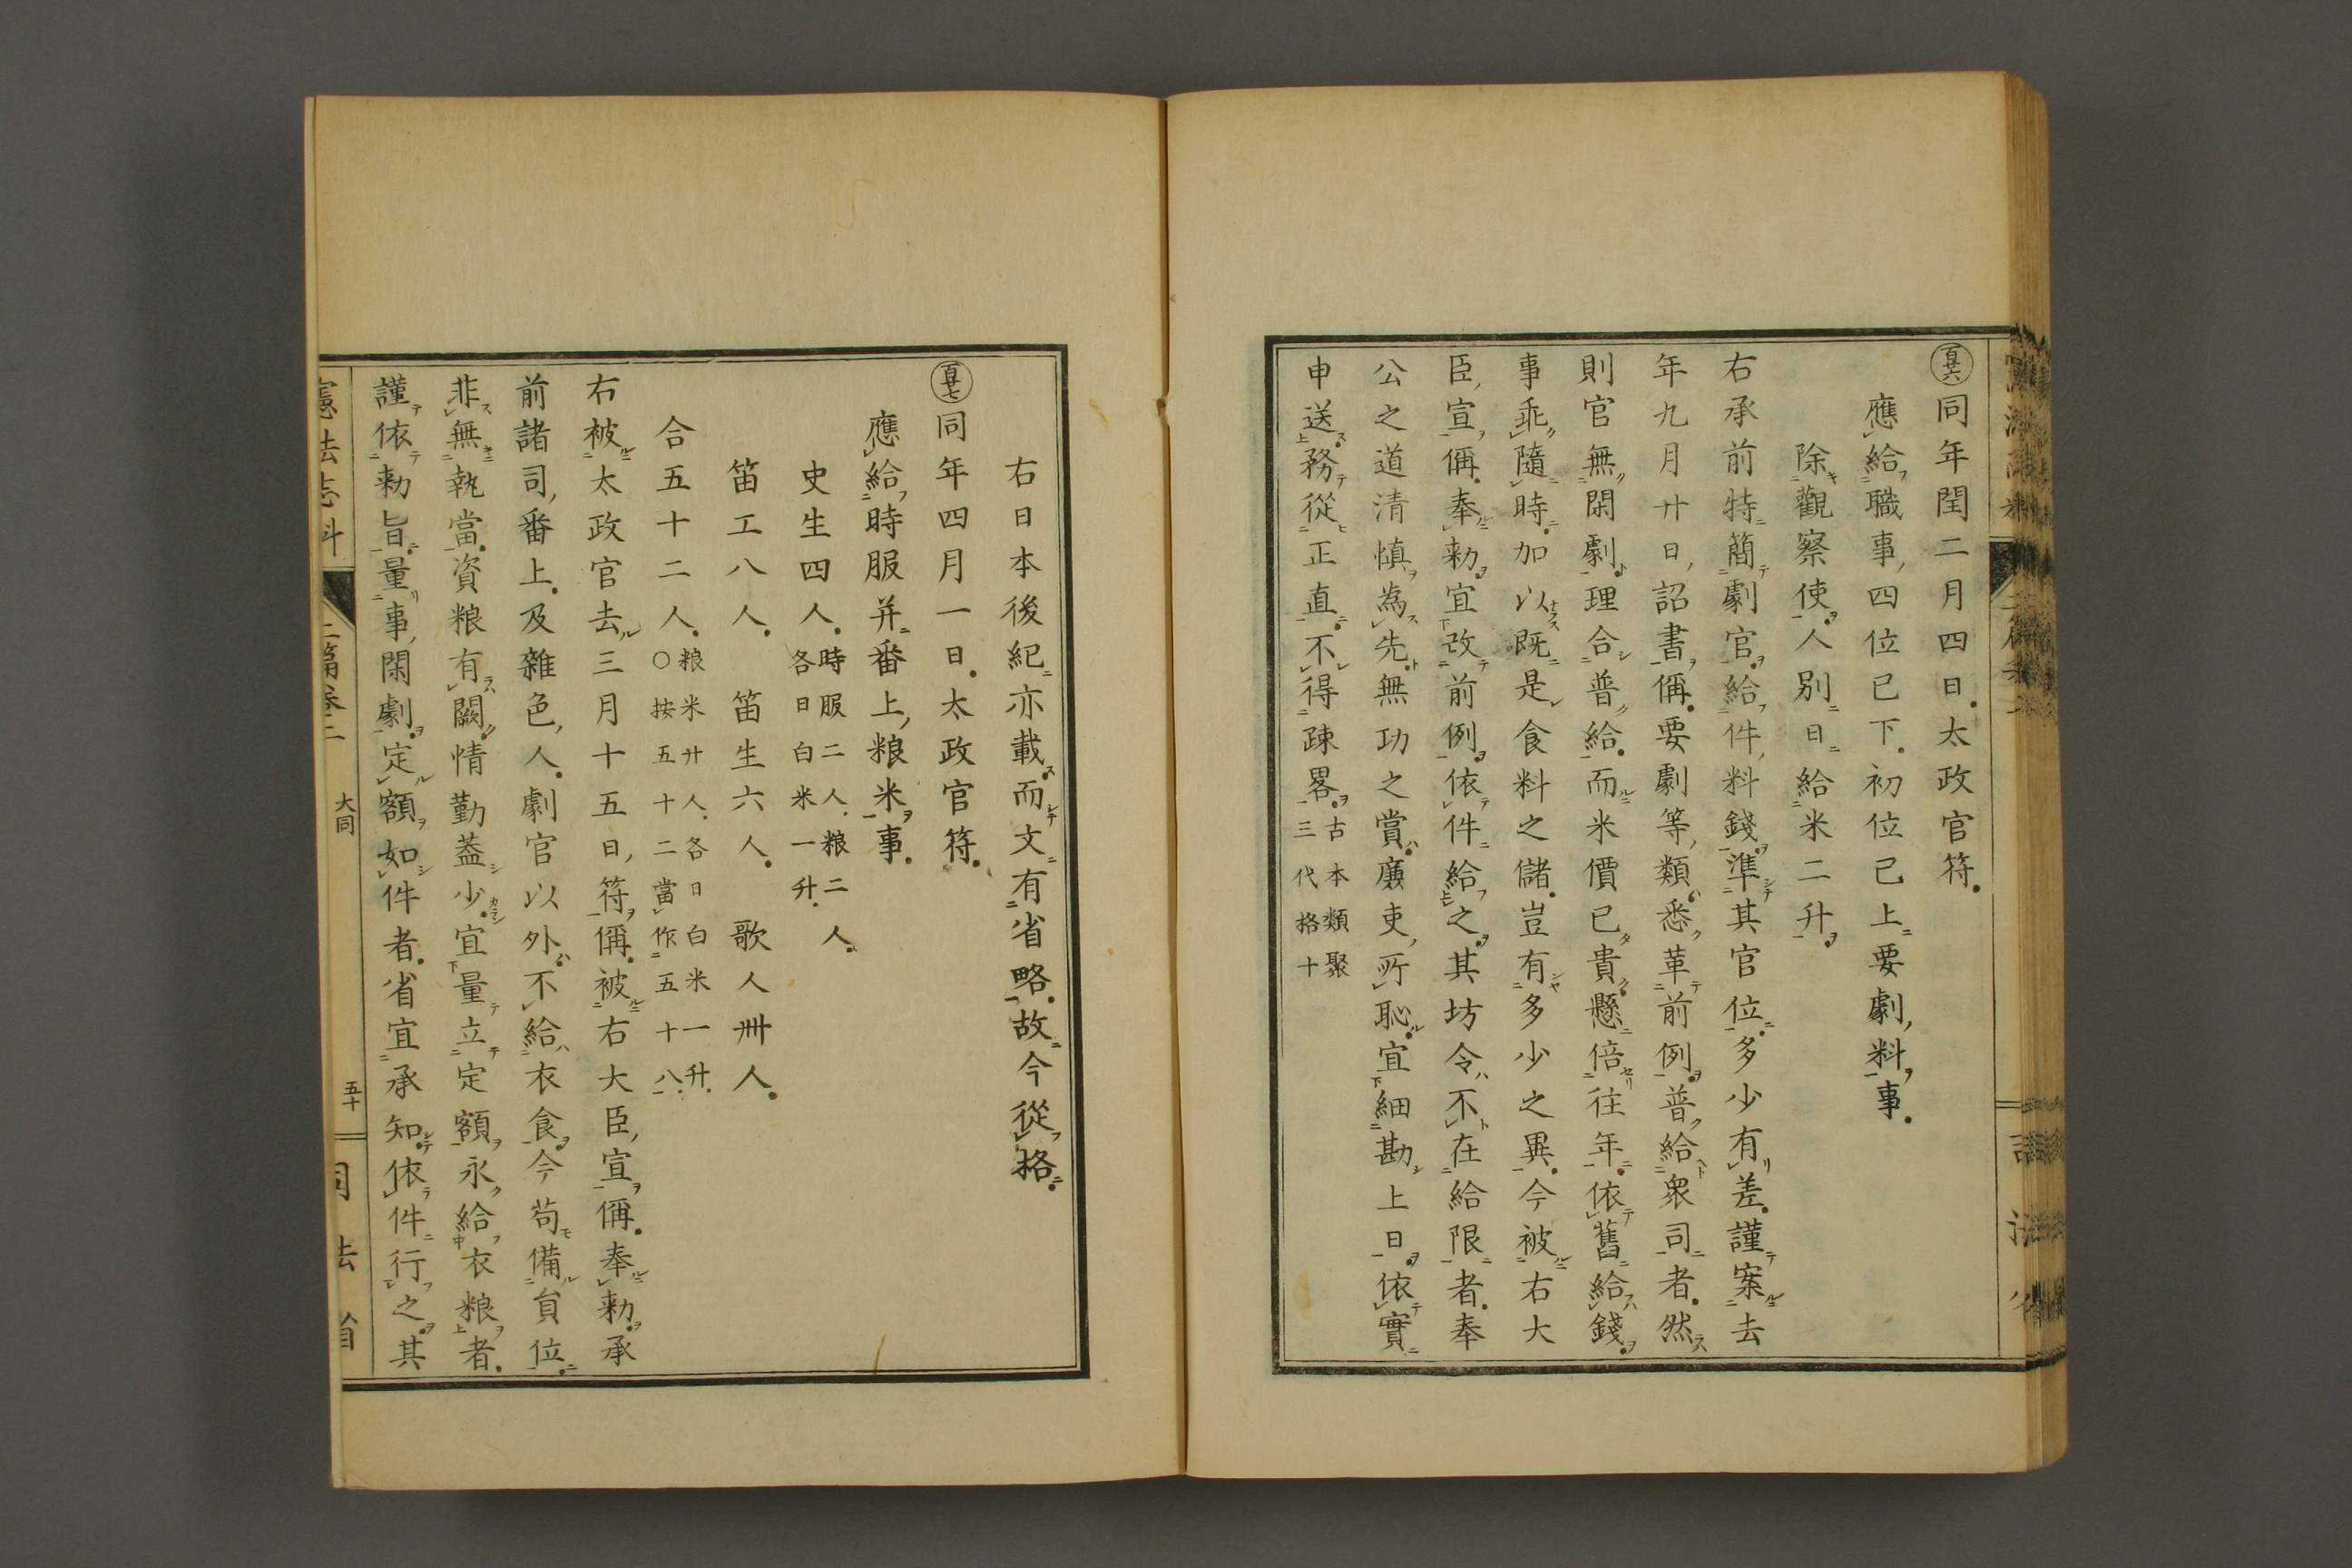 百廿六 同年閏二月四日。太政官符。
應給職事四位已下。初位已上要劇料事。
除觀察使。人別日給米二升。
右承前特簡劇官。給件料錢。準其官位。多少有差。謹案去
年九月廿日詔書偁。要劇等類悉革前例。普給衆司者。然
則官無閑劇。理合普給。而米價已貴。懸倍往年。依舊給錢。
事乖隨時。加以既是食料之儲。豈有多少之異。今被右大
臣宣偁。奉勅宜改前例。依件給之。其坊令不在給限者。奉
公之道清慎為先。無功之賞。廉吏所恥。宜細勘上日。依實
申送。務從正直。不得疎畧。古本類聚三代格十
右日本後紀亦載。而文有省略。故今從格。
百廿七 同年四月一日。太政官符。
應給時服并番上粮米事。
史生四人。時服二人。粮二人。各日白米一升。
笛工八人。 笛生六人。 歌人卅人。
合五十二人。粮米廿人。各日白米一升。○按五十二當作五十八。
右被太政官去三月十五日符偁。被右大臣宣偁。奉勅。承
前諸司番上。及雜色人。劇官以外。不給衣食。今苟備員位。
非無執當。資粮有闕。情勤葢少。宜量立定額。永給衣粮者。
謹依勅旨。量事閑劇。定額如件者。省宜承知。依件行之。其
憲法志料 二篇卷二 大同 五十 司法省